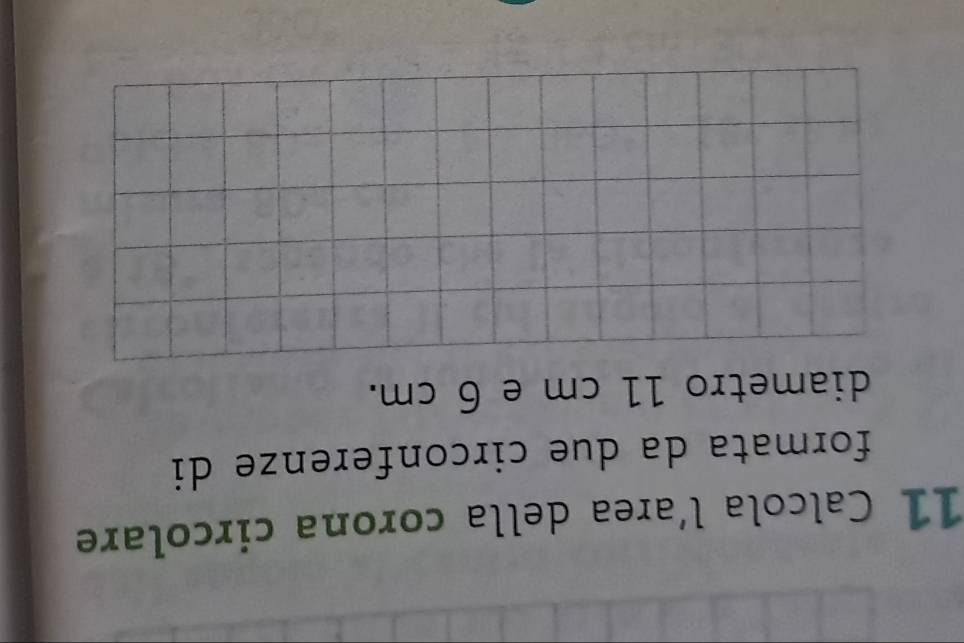 11 Calcola l'area della corona circolare
formata da due circonferenze di
diametro 11 cm e 6 cm.